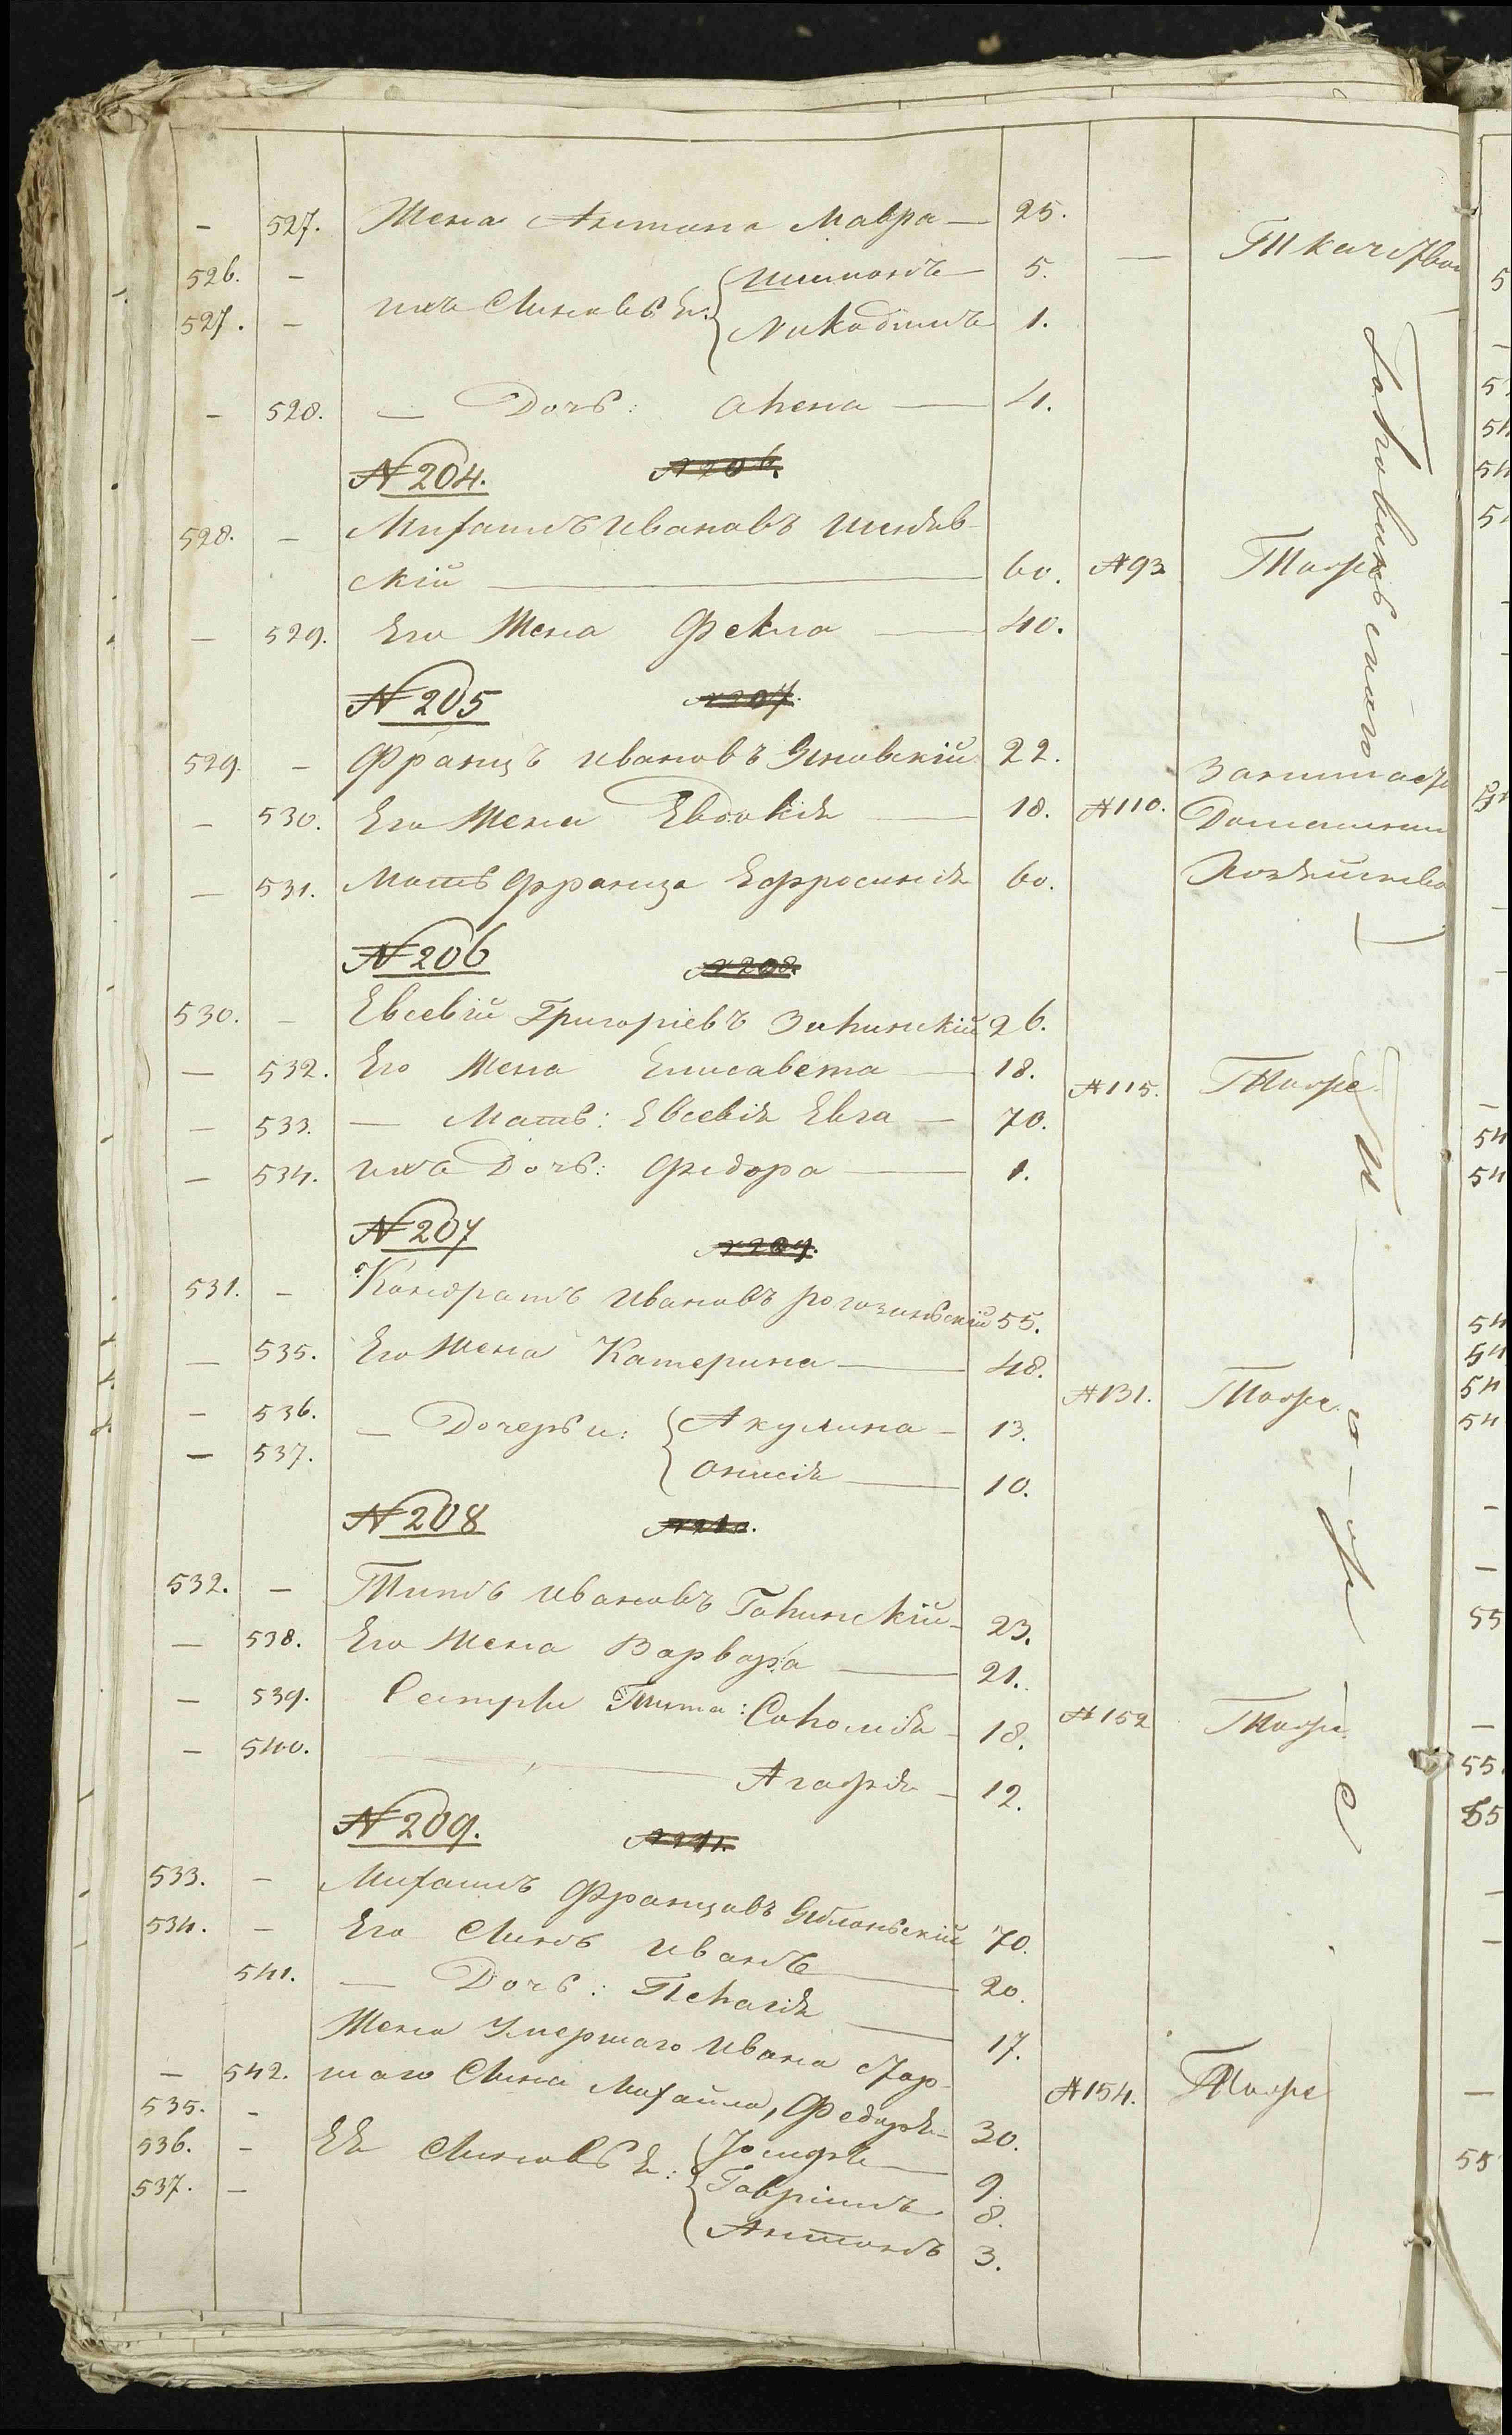 — 527. Жена Антона Мавра — 25.
526. — ихъ Сыновьѣ: 5. —
527. — Никодимъ 1.
— 528. — Дочь: Алена — 4.
№ 204. № 206.
528. — Михаилъ Ивановъ
скій — 60. № 93 Тоже
— 529. Его Жена Фекла — 40.
№ 205 № 207.
529. — Францъ Ивановъ 22.
— 530. Его Жена Евдокія — 18. № 110. Домашнимъ
— 531. Мать Франца Ефросинія 60.
№ 206 № 208.
530. — Евсевій Григоріевъ Зилинскій 26.
— 532. Его Жена Елисавета — 18. № 115. Тоже
— 533. — Мать: Евсевія Евга — 70.
— 534. ихъ Дочь: Федора — 1.
№ 207 № 209.
531. — Кондратъ Ивановъ Рогозинскій 55.
— 535. Его Жена Катерина — 48.
— 536. — Дочерьи: Акулина — 13. № 131. Тоже
— 537. Онисія — 10.
№ 208 № 210.
532. — Титъ Ивановъ Галинскій — 23.
— 538. Его Жена Варвара — 21.
— 539. Сестры Тита: Соломія — 18. № 152 Тоже
— 540. — Агафія — 12.
№ 209. № 211.
533. — Михаилъ Францовъ Яблонскій 70.
534. — Его Сынъ Иванъ — 20.
541. — Дочь: Пелагія — 17.
Жена Умершаго Ивана стар-
— 542. шаго Сына Михайла, Федора — 30. № 154. Тоже
535. — Еѣ Сыновьѣ: Іосифъ — 9.
536. — Гавріилъ 8.
537. — Антонъ 3.